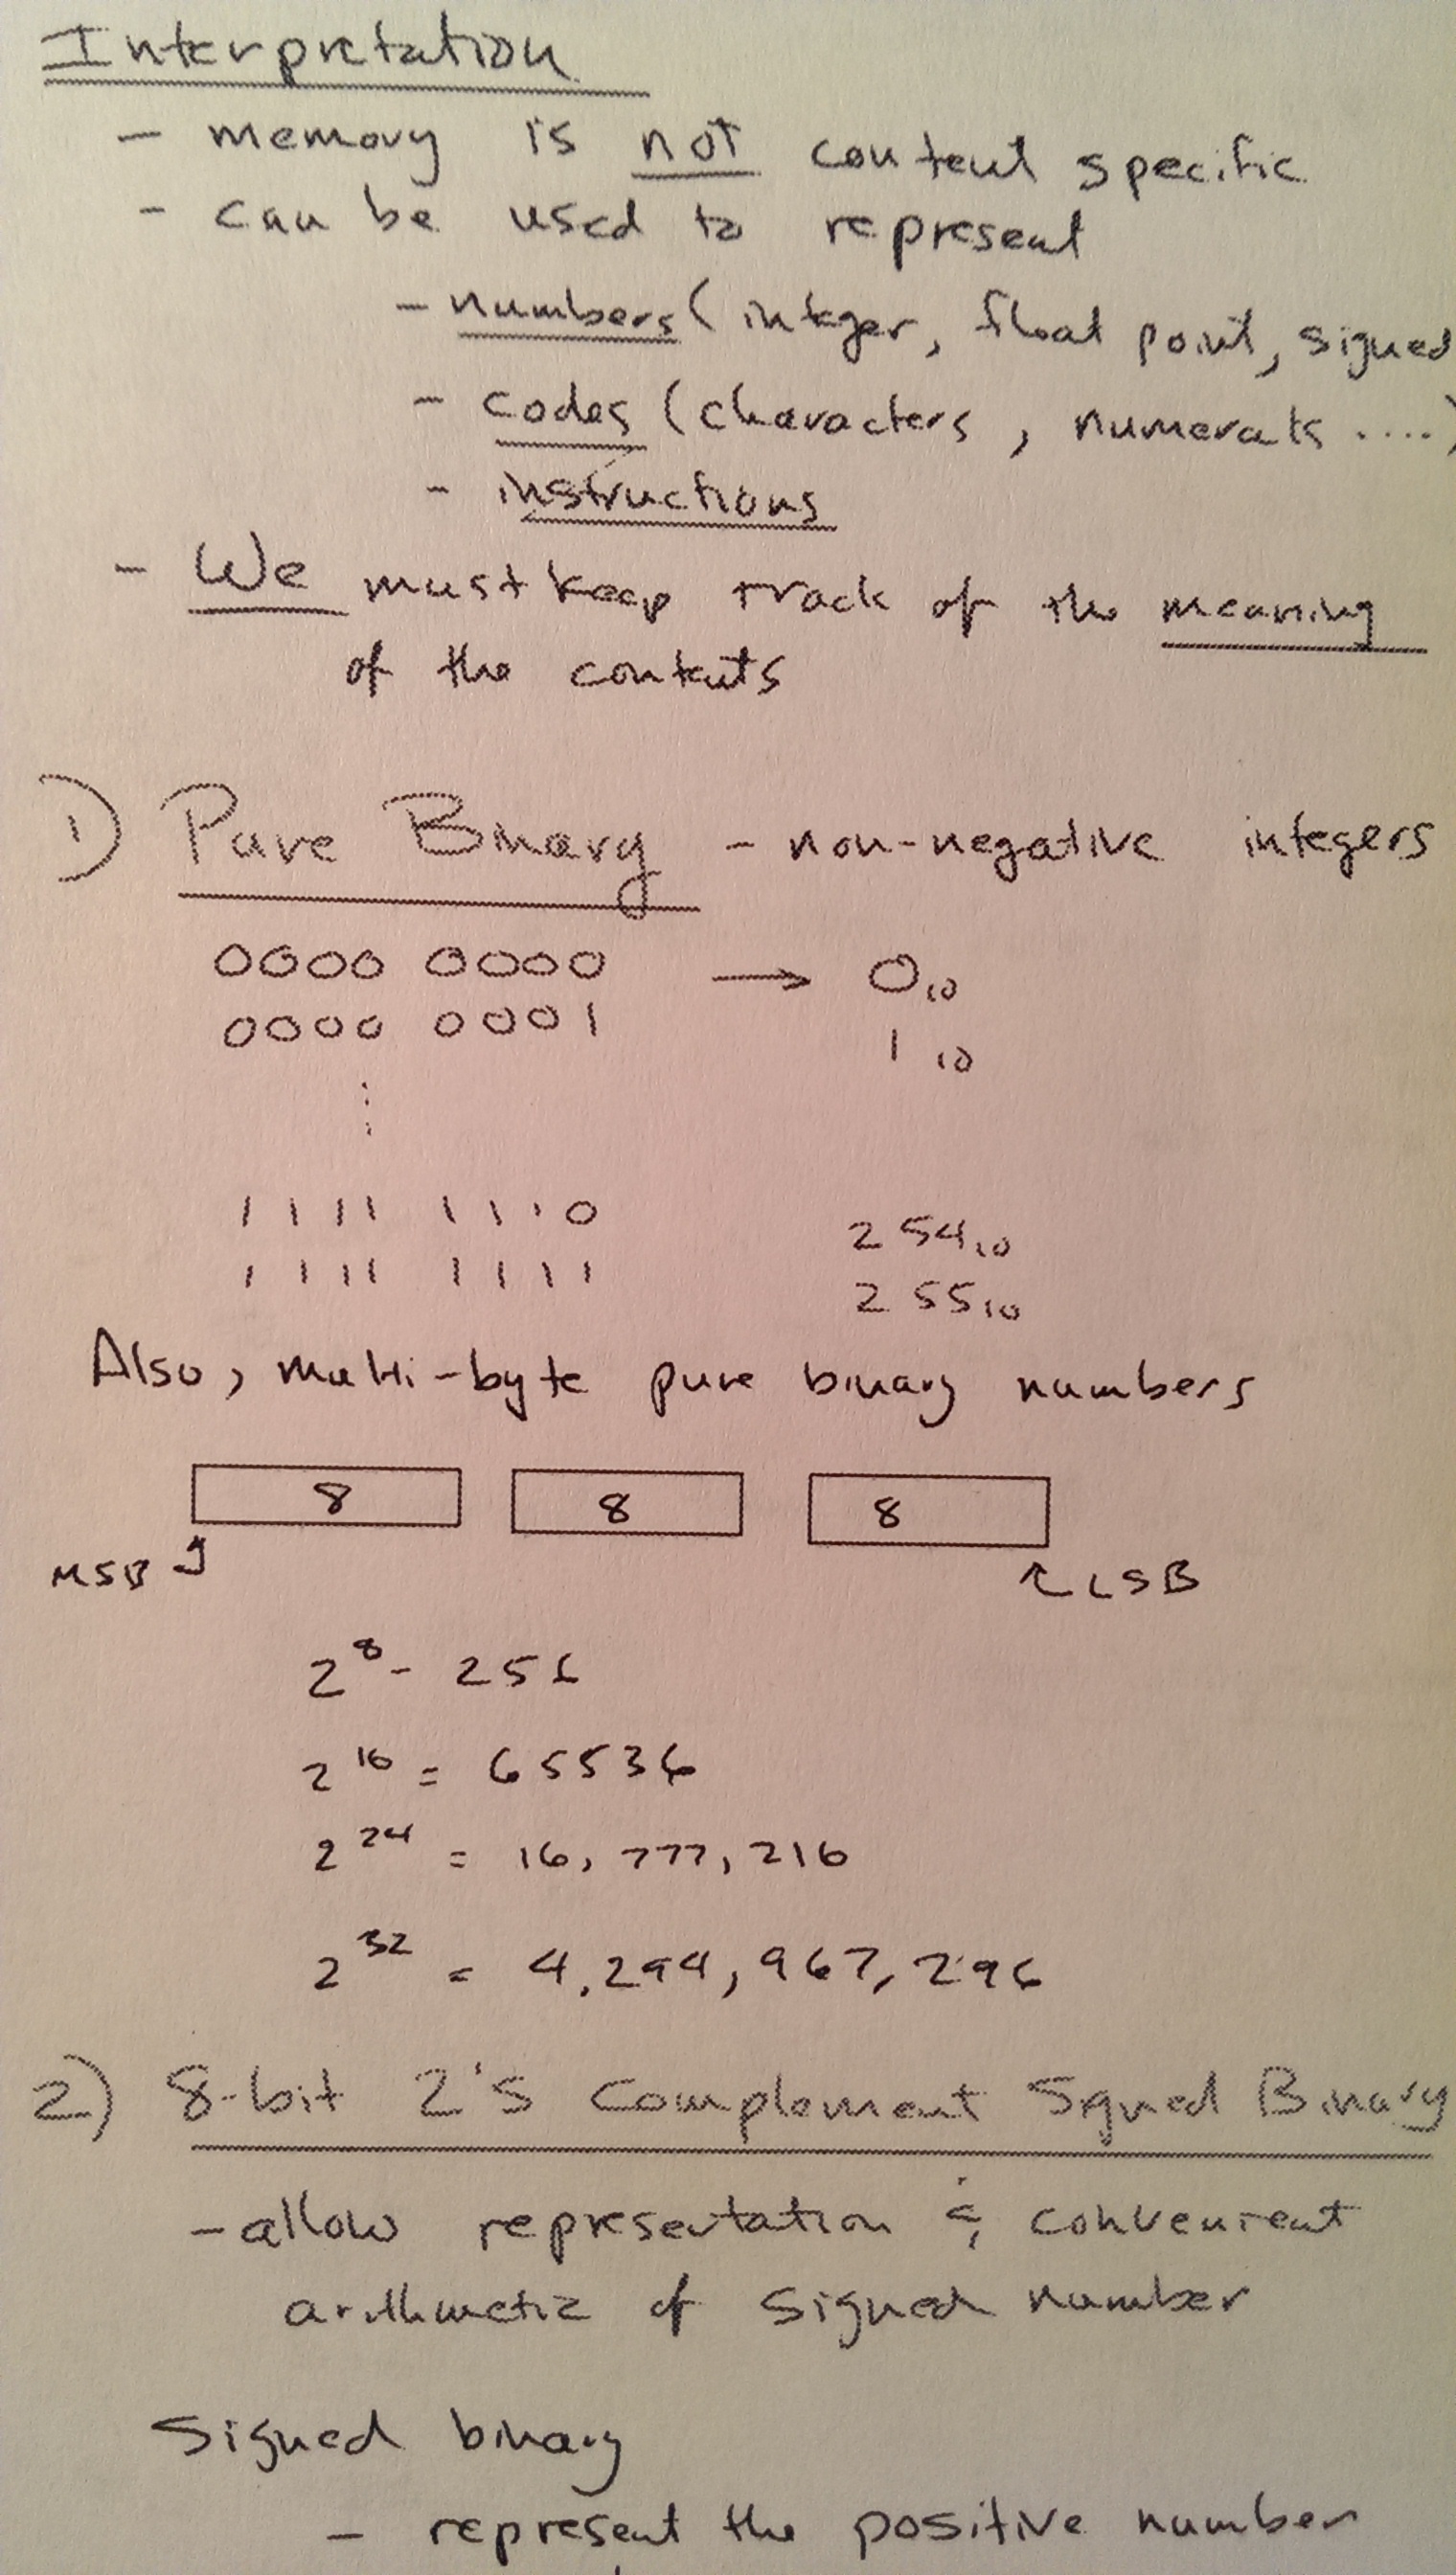 Interpretation
- memory is not content specific
- can be used to represent
- numbers (integer, float point, signed
- codes (characters, numerals ....)
- instructions
- We must keep track of the meaning
of the contents
1) Pure Binary - non-negative integers
0000 0000 → 0₁₀
0000 0001 1₁₀
⋮
1111 1110 254₁₀
1111 1111 255₁₀
Also, multi-byte pure binary numbers
8 8 8
MSB LSB
2⁸ - 256
2¹⁶ = 65536
2²⁴ = 16,777,216
2³² = 4,294,967,296
2) 8-bit 2's Complement Signed Binary
- allow representation & convenient
arithmetic of signed number
Signed binary
- represent the positive number